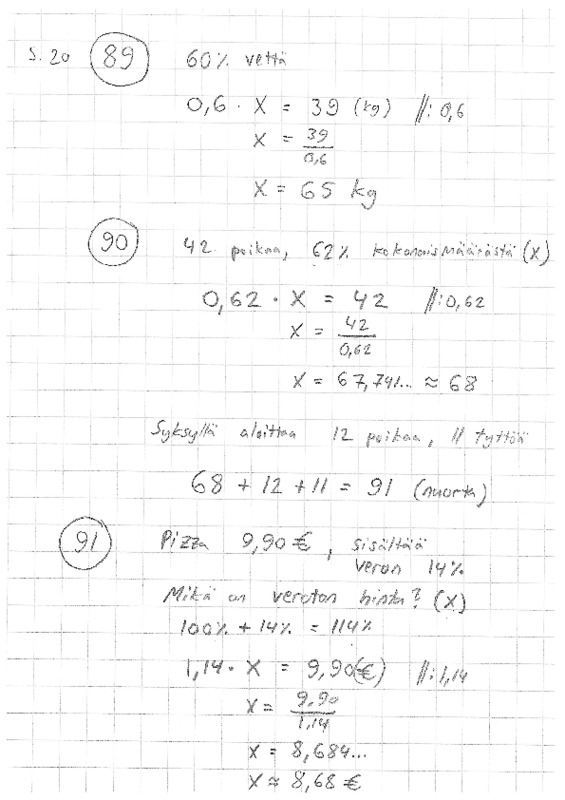 s. 20 89 60% vettä
0,6 · x = 39 (kg) ||: 0,6
x = 39/0,6
x = 65 kg
90 42 poikaa, 62% kokonaismäärästä (x)
0,62 · x = 42 ||: 0,62
x = 42/0,62
x = 67,741... ≈ 68
Syksyllä aloittaa 12 poikaa, 11 tyttöä
68 + 12 + 11 = 91 (nuorta)
91 Pizza 9,90 €, sisältää
veron 14%
Mikä on veroton hinta? (x)
100% + 14% = 114%
1,14 · x = 9,90(€) ||: 1,14
x = 9,90/1,14
x = 8,684...
x ≈ 8,68 €